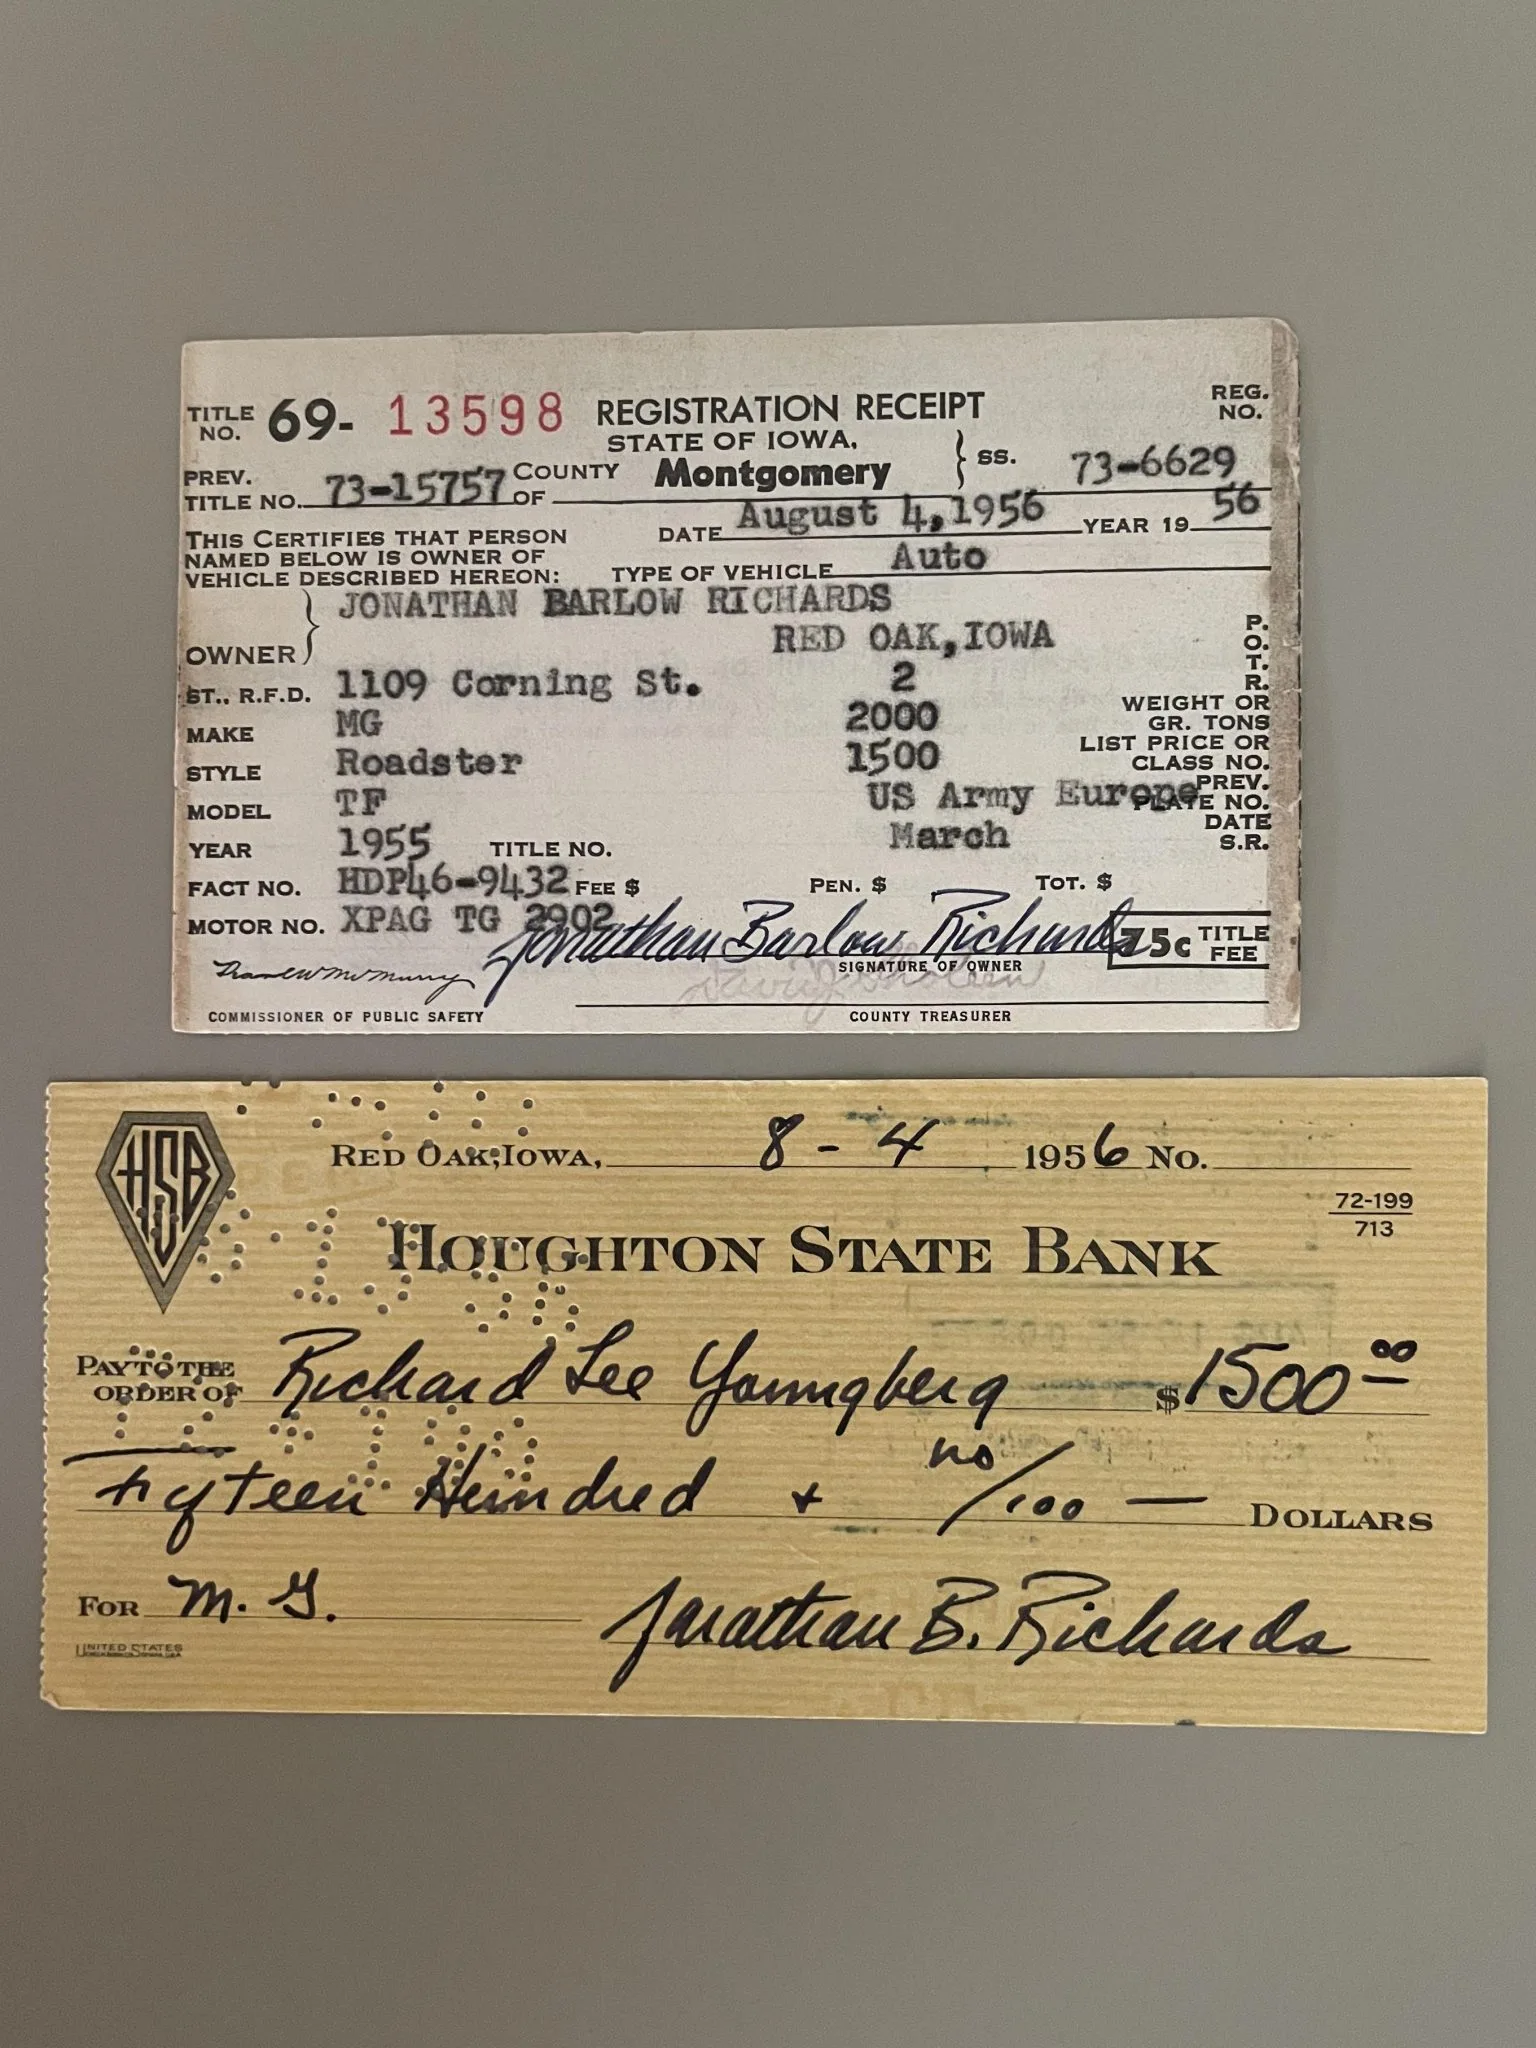 TITLE NO. 69- 13598 REGISTRATION RECEIPT REG. NO.
STATE OF IOWA,
PREV. TITLE NO. 73-15757 COUNTY OF Montgomery } SS. 73-6629
DATE August 4,1956 YEAR 19 56
THIS CERTIFIES THAT PERSON
NAMED BELOW IS OWNER OF
VEHICLE DESCRIBED HEREON: TYPE OF VEHICLE Auto
OWNER } JONATHAN BARLOW RICHARDS
RED OAK,IOWA P. O.
ST., R.F.D. 1109 Corning St. 2 T. R.
MAKE MG 2000 WEIGHT OR GR. TONS
STYLE Roadster 1500 LIST PRICE OR CLASS NO.
MODEL TF US Army Europe PREV. PLATE NO.
YEAR 1955 TITLE NO. March DATE S.R.
FACT NO. HDP46-9432 FEE $ PEN. $ TOT. $
MOTOR NO. XPAG TG 2902 Jonathan Barlow Richards 75c TITLE FEE
SIGNATURE OF OWNER
COMMISSIONER OF PUBLIC SAFETY COUNTY TREASURER
HSB
RED OAK, IOWA, 8 - 4 1956 NO.
72-199
713
HOUGHTON STATE BANK
PAY TO THE ORDER OF Richard Lee Youngberg $1500 00
Fifteen Hundred + no/100 — DOLLARS
FOR M. G. Jonathan B. Richards
UNITED STATES